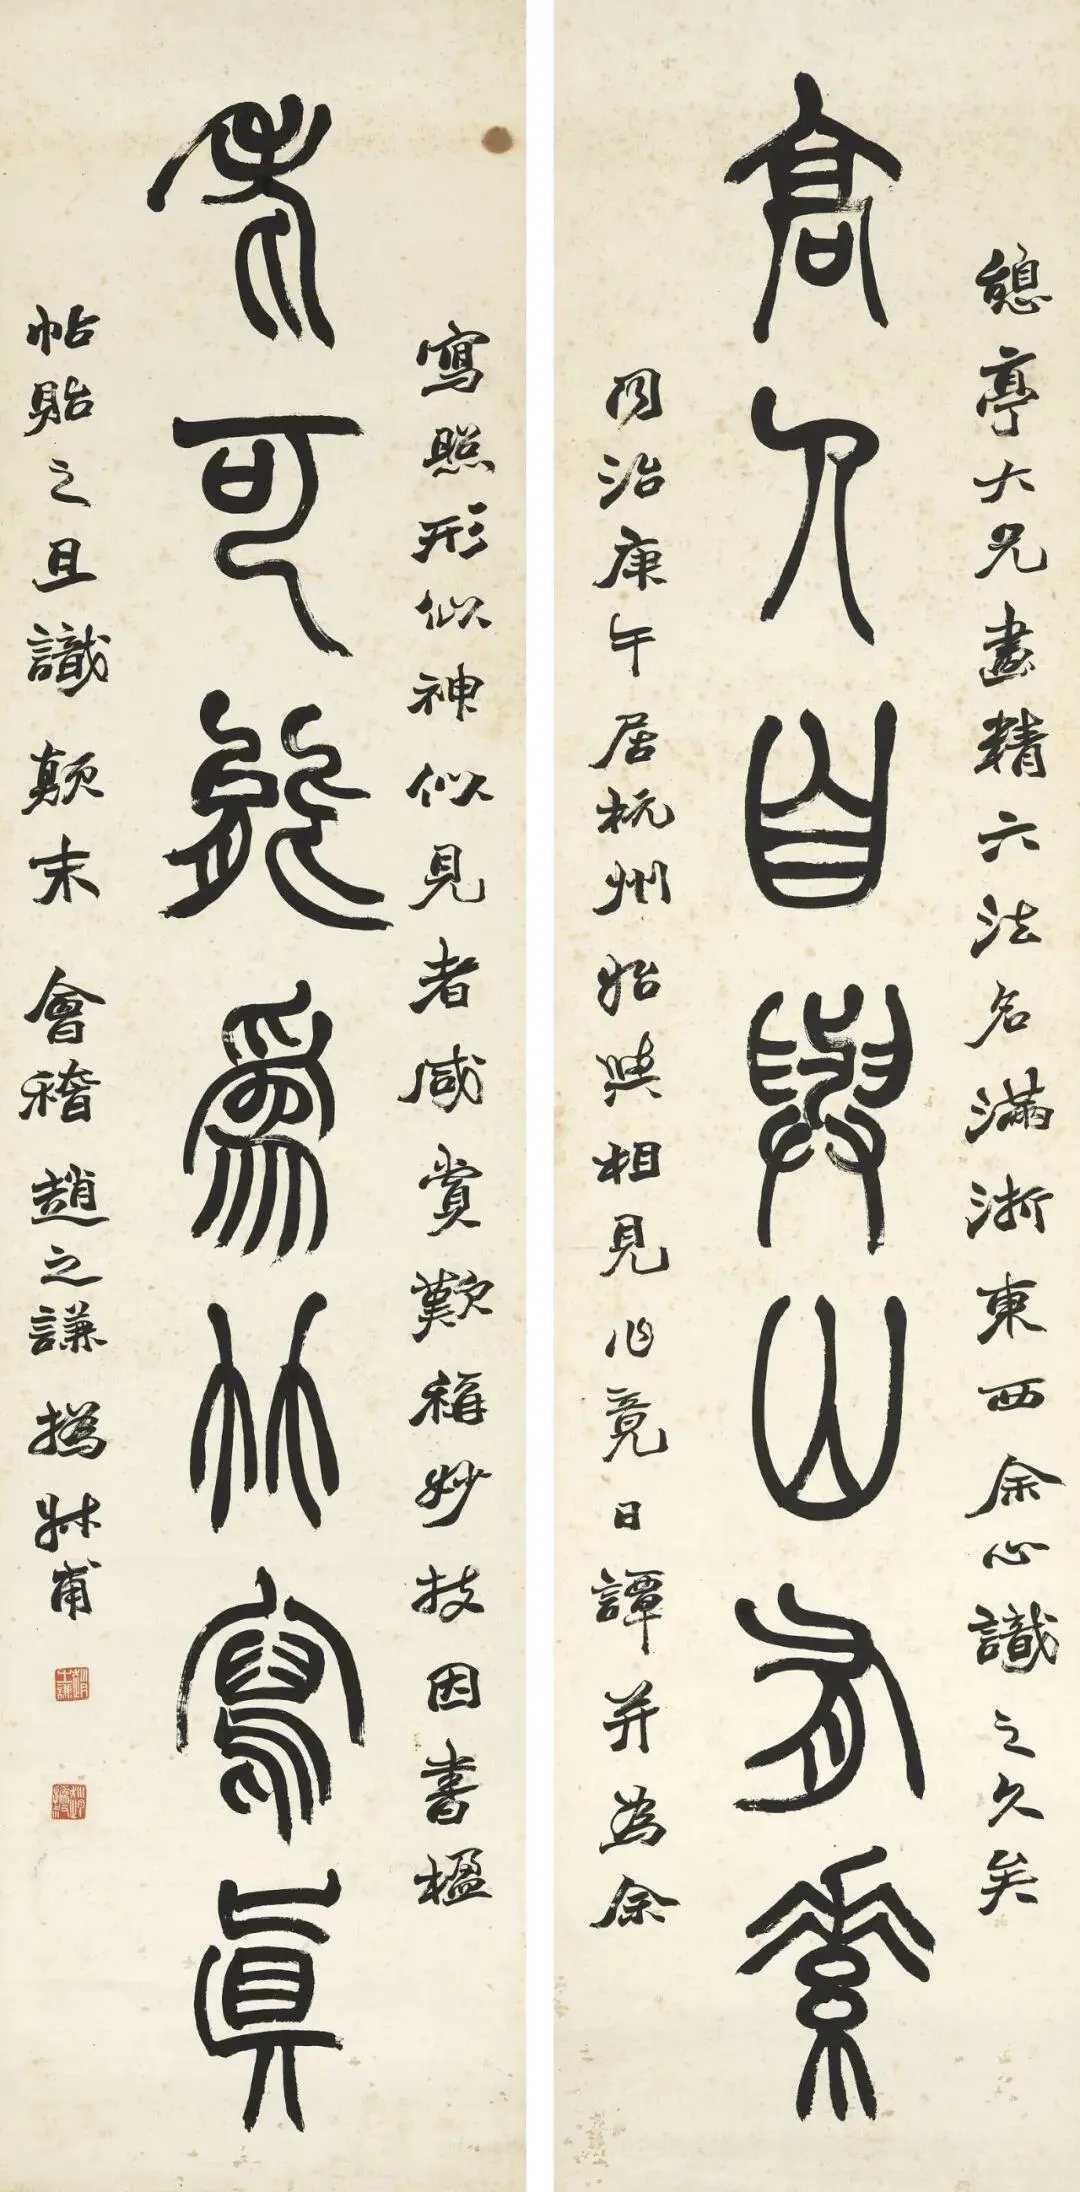 憩亭大兄畫精六法名滿浙東西余心識之久矣
高人自與山有素
同治庚午居杭州始與相見作竟日譚并為余
寫照形似神似見者咸賞歎稱妙技因書楹
老可能爲竹寫眞
帖貽之且識顛末 會稽趙之謙撝叔甫